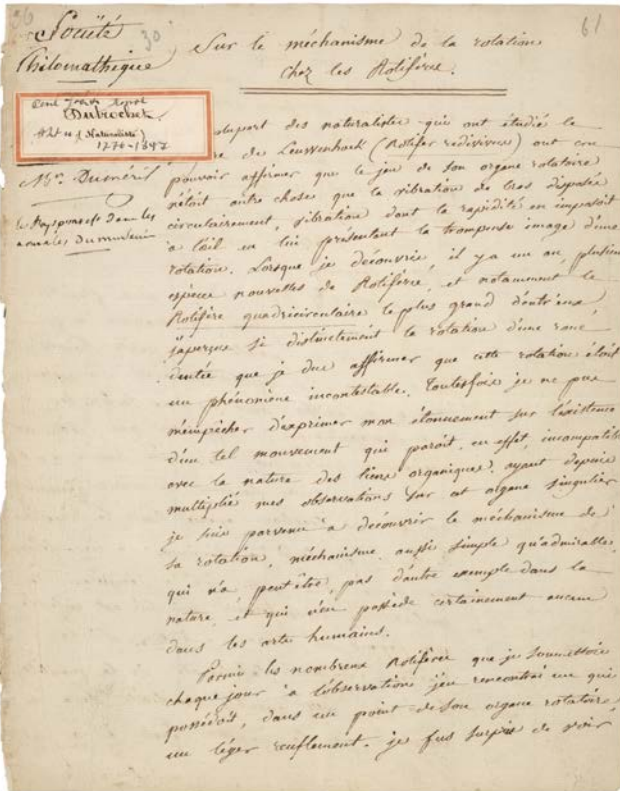 30
61
Société
Philomathique
Sur le méchanisme de la rotation
chez les Rotifères.
René Joachim Henri
Dutrochet
(Naturaliste)
1776-1847
Mr. Duméril
annales du muséum
plupart des naturalistes qui ont étudié le
de Leuwenhoek (Rotifer redivivus) ont cru
pouvoir affirmer que le jeu de son organe rotatoire
n'étoit autre chose que la vibration de cils disposés
circulairement, vibration dont la rapidité en imposoit
à l'œil en lui présentant la trompeuse image d'une
rotation. Lorsque je découvris, il y a un an, plusieurs
espèces nouvelles de Rotifères, et notamment le
Rotifère quadricirculaire le plus grand d'entr'eux,
j'aperçus si distinctement la rotation d'une roue
dentée que je dus affirmer que cette rotation étoit
un phénomène incontestable. Toutesfois je ne pus
m'empêcher d'exprimer mon étonnement sur l'existence
d'un tel mouvement qui paroit, en effet, incompatible
avec la nature des liens organiques. ayant depuis
multiplié mes observations sur cet organe singulier
je suis parvenu à découvrir le méchanisme de
sa rotation, méchanisme aussi simple qu'admirable
qui n'a, peut être pas d'autre exemple dans la
nature, et qui n'en possède certainement aucun
dans les arts humains.
Parmi les nombreux Rotifères que je soumettois
chaque jour à l'observation j'en rencontrai un qui
possédoit, dans un point de son organe rotatoire,
un léger renflement. je fus surpris de voir